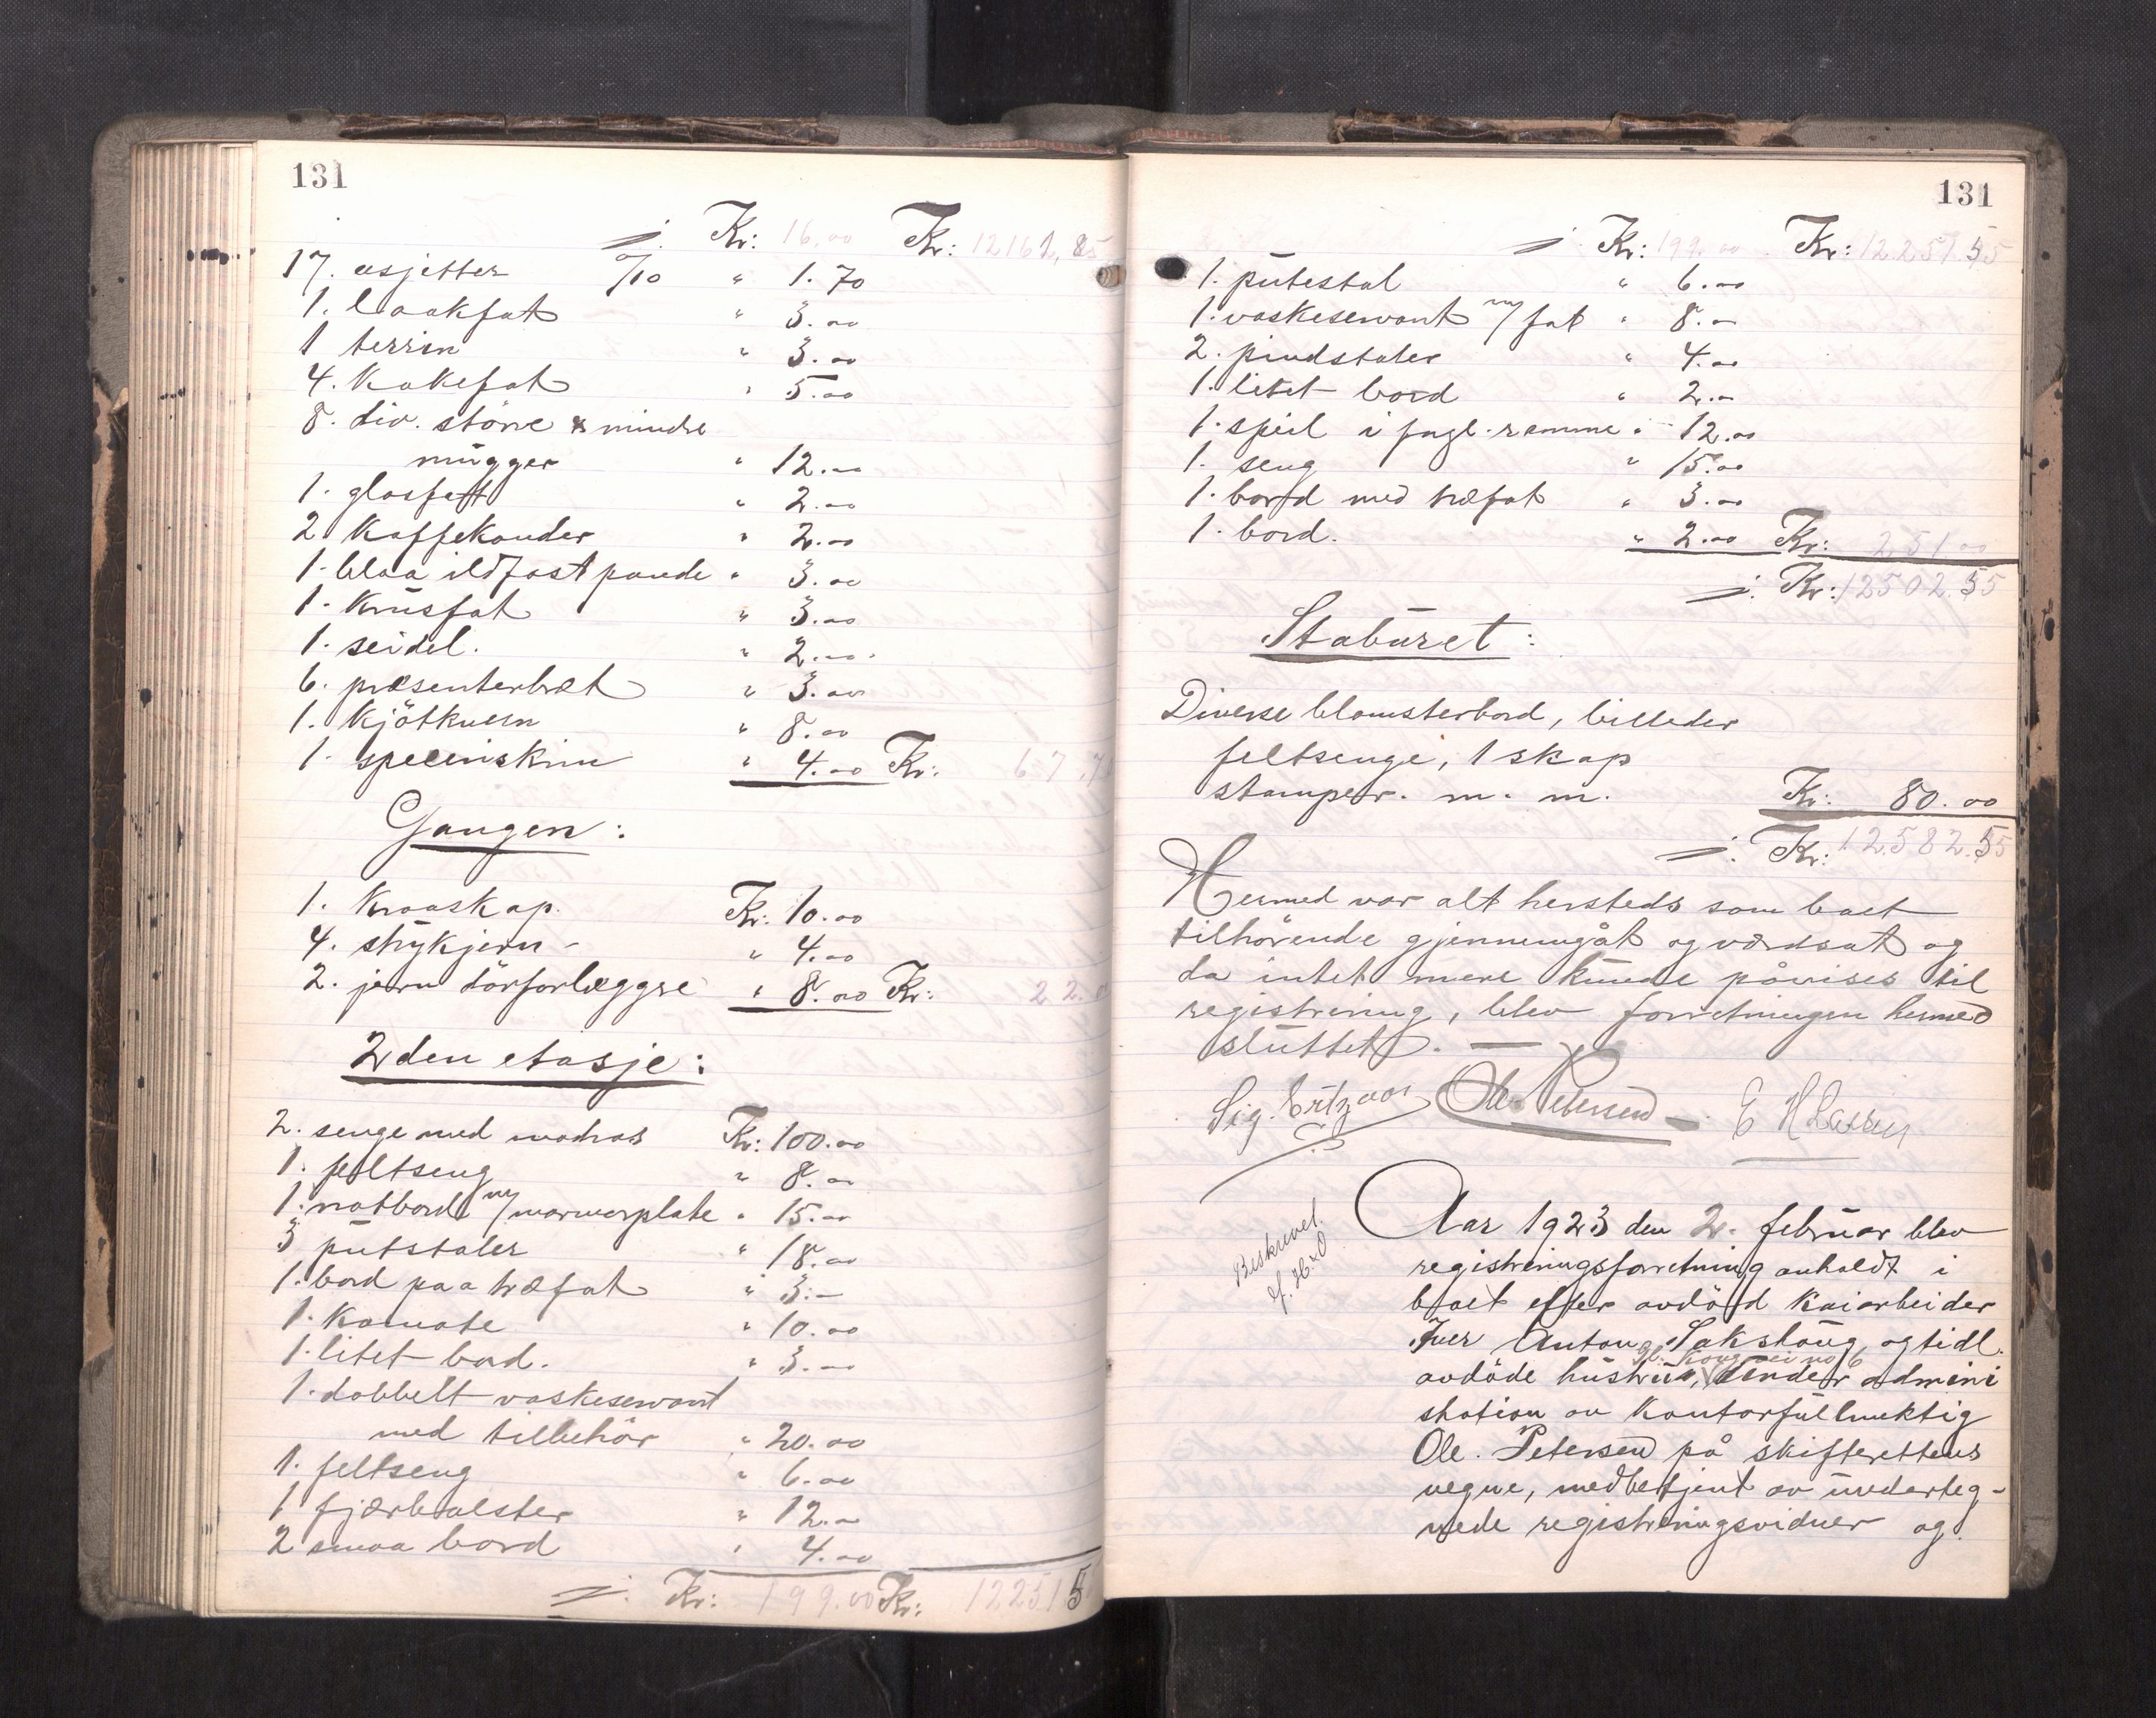 131
Kr: 16.00 Kr: 12161,85
17. asjetter 0/10 " 1.70
1. laakfat " 3.00
1 terrin " 3.00
4. Kakefat " 5.00
8. div. större & mindre
mugger " 12.00
1. glasfatt " 2.00
2 Kaffekander " 2.00
1. blaa ildfast pande " 3.00
1. Krusfat " 3.00
1. seidel. " 2.00
6. præsenterbræt " 3.00
1. Kjötkvern " 8.00
1. " 4.00 Kr: 67.7
Gangen:
1. Kroaskap. Kr: 10.00
4. strykjern - " 4.00
2. jern dörforlæggre " 8.00 Kr: 22.
2den etasje:
2. senge med madras Kr: 100.00
1. feltseng " 8.00
1. natbord m/ marmorplate " 15.00
3 putstoler " 18.00
1. bord paa træfat " 3.-
1. Komode " 10.00
1. litet bord. " 3.00
1. dobbelt vaskeservant
med tilbehör " 20.00
1. feltseng " 6.00
1 fjærbolster " 12.00
2 smaa bord " 4.00
Kr: 199.00 Kr: 122515
131
Kr: 199.00 Kr: 12251 55
1. putestol " 6.00
1. vaskeservant m/ fat " 8.-
2. pindstoler " 4.00
1. litet bord " 2.-
1. speil i fugl. ramme " 12.00
1. seng " 15.00
1. bord med træfat " 3.00
1. bord. " 2.00 Kr: 251.00
Kr: 12502.55
Staburet:
Diverse blomsterbord, billeder
feltsenge, 1 skap
stamper. m. m. Kr: 80.00
Kr: 12.582.55
Hermed var alt hersteds som boet
tilhörende gjennemgåt og værdsat og
da intet mere kunde påvises til
registrering, blev forretningen hermed
sluttet. —
Sig. Ole Petersen E H Larsen
Aar 1923 den 2. februar blev
Beskrevet
registreringsforretning avholdt i
boet efter avdöd Kaiarbeider
Iver Anton Sakstaug og tidl.
avdöde hustru, under admini
stration av Kontorfullmektig
Ole. Petersen på skifterettens
vegne, medbetjent av underteg-
nede registreringsvidner og